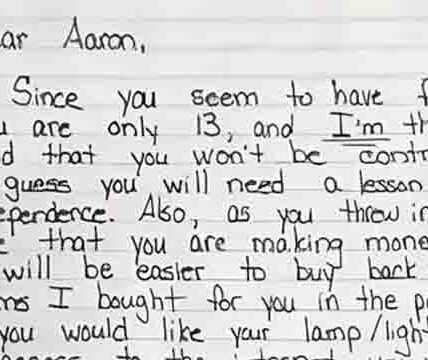 ar Aaron,
Since you seem to have f
u are only 13, and I'm th
d that you won't be contr
guess you will need a lesson
ependence. Also, as you threw in
that you are making mone
will be easier to buy back
ms I bought for you in the p
you would like your lamp/ligh
to the